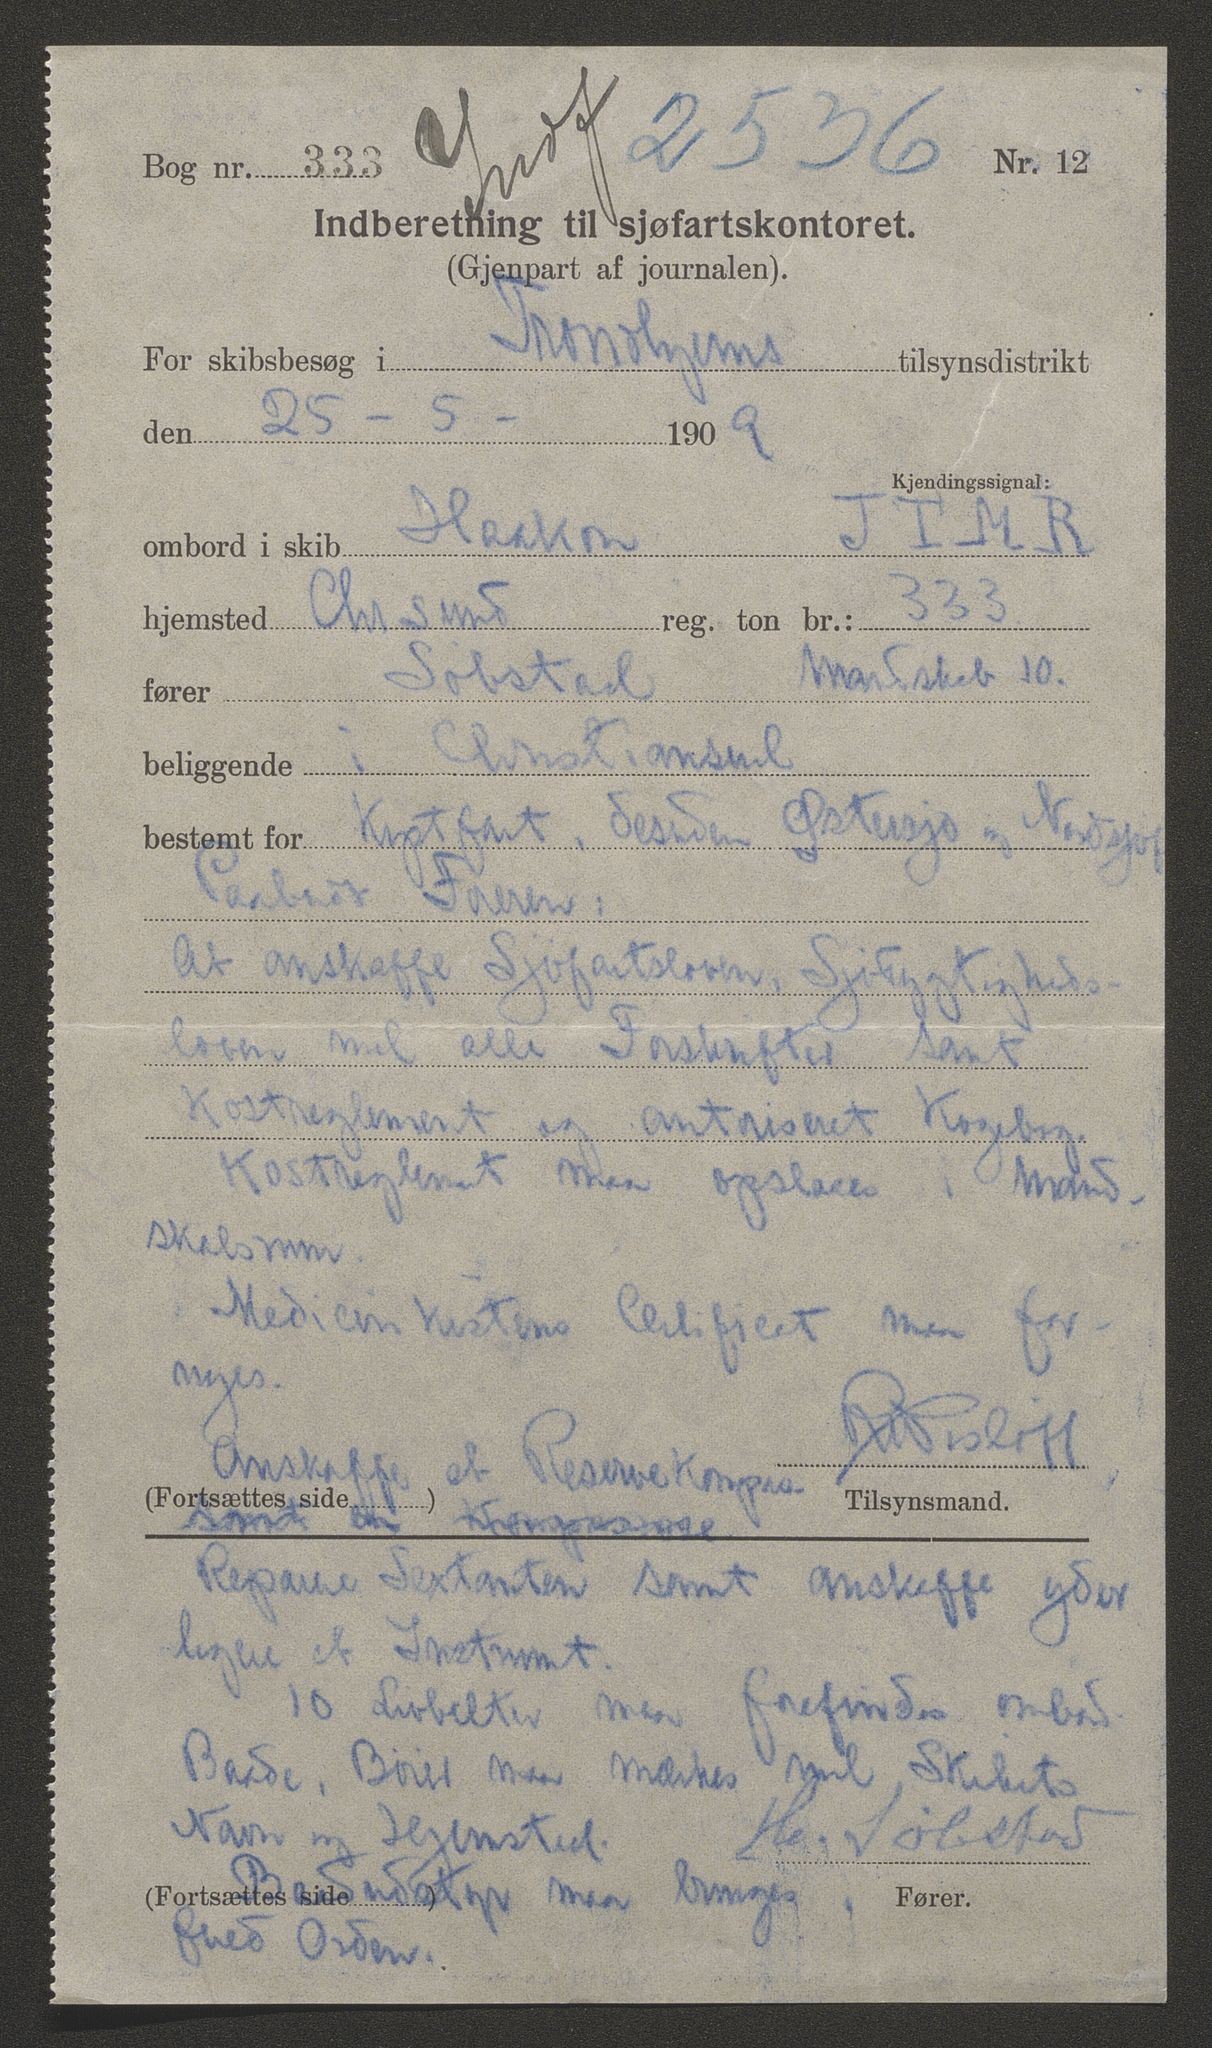 Indf 2536
Bog nr. 333 Nr. 12
Indberetning til sjøfartskontoret.
(Gjenpart af journalen).
For skibsbesøg i Trondhjems tilsynsdistrikt
den 25 - 5 - 1909
Kjendingssignal:
ombord i skib Haakon J T M R
hjemsted Chr sund reg. ton br.: 333
fører Søbstad Mandskab 10.
beliggende i Christiansund
bestemt for Kystfart, desuden Østersjø og Nordsjøf
Paabudt Føreren:
At anskaffe Sjøfartsloven, Sjødygtigheds-
loven med alle Forskrifter samt
Kostreglement og autoriseret Kogebog.
Kostreglemt maa opslaaes i Mand-
skabsrum.
Medicinkistens Certificat maa for-
nyes.
Anskaffe et Reservekompas
(Fortsættes side ) Tilsynsmand.
samt en Kompasrose
Reparere Sextanten samt anskaffe yder
ligere et Instrumt.
10 Livbelter maa forefindes ombord.
Baade, Bøier maa mærkes med Skibets
Navn og Hjemsted. Søbstad
(Fortsættes side ) Fører.
Baadudstyr maa bringes i
fuld Orden.